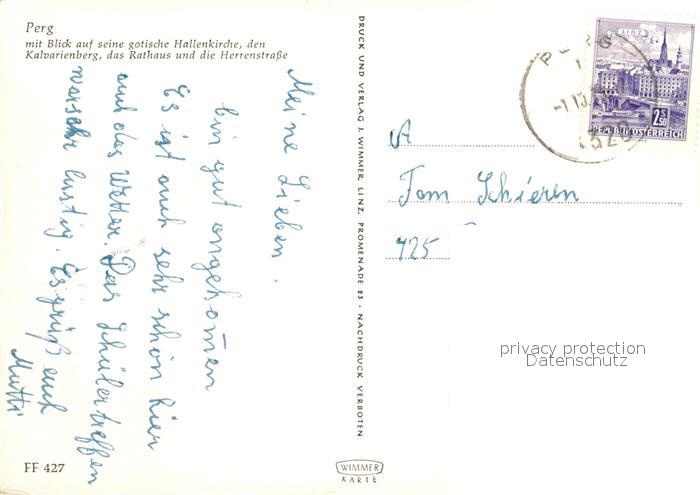 Perg
mit Blick auf seine gotische Hallenkirche, den
Kalvarienberg, das Rathaus und die Herrenstraße
Meine Lieben.
bin gut angekommen
Es ist auch sehr schön hier
auch das Wetter. Das Schülertreffen
war sehr lustig. Es grüß euch
Mutti
FF 427
DRUCK UND VERLAG J. WIMMER, LINZ, PROMENADE 23 · NACHDRUCK VERBOTEN
WIMMER
KARTE
LINZ
2.50
REPUBLIK ÖSTERREICH
4320
A
Tom Schieren
425
privacy protection
Datenschutz